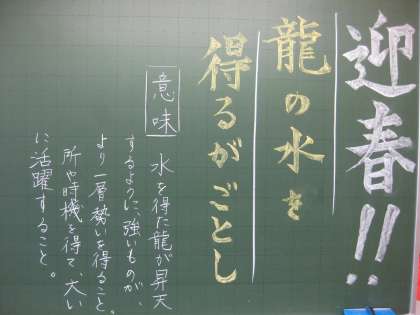 迎春!!
龍の水を
得るがごとし
意味
水を得た龍が昇天
するように強いものが、
より一層勢いを得ること。
所や時機を得て、大い
に活躍すること。